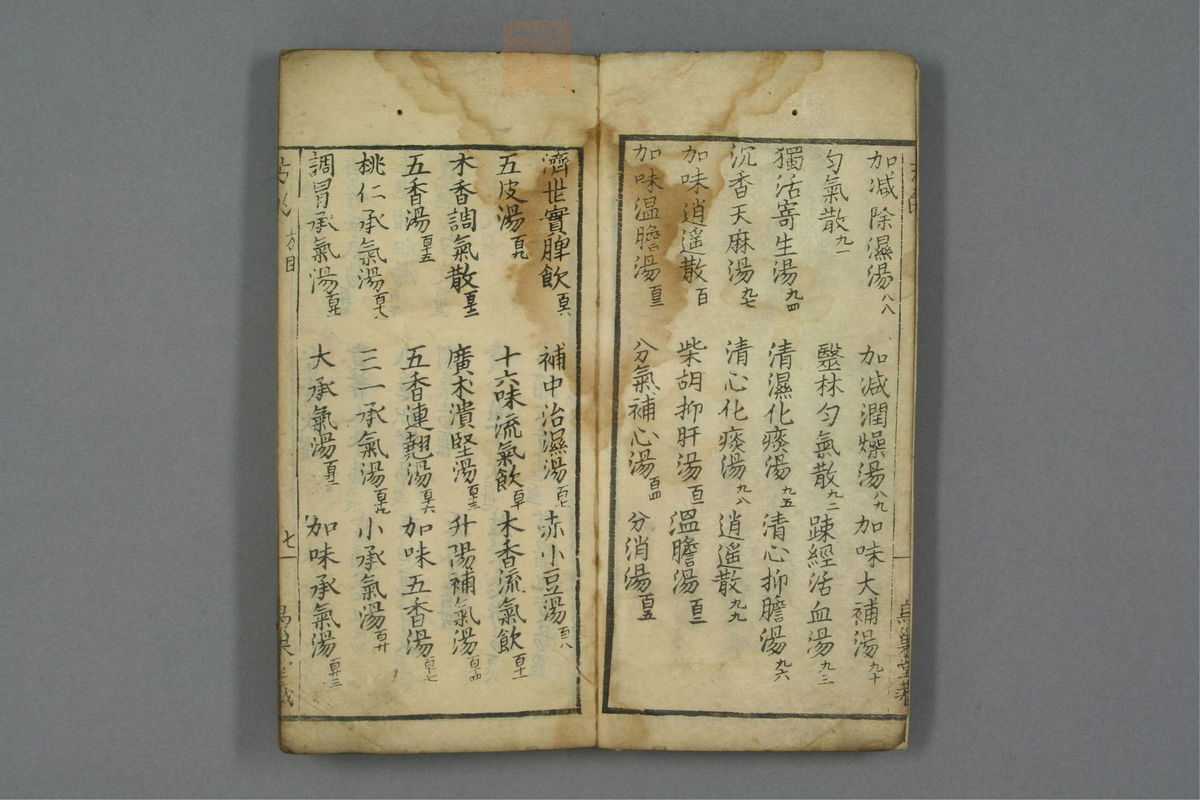 加减除濕湯八八 加减潤燥湯八九 加味大補湯九十
匀氣散九一 毉林匀氣散九二 踈經活血湯九三
獨活寄生湯九四 清濕化痰湯九五 清心抑膽湯九六
沉香天麻湯九七 清心化痰湯九八 逍遥散九九
加味逍遥散百 柴胡抑肝湯百一 温膽湯百二
加味温膽湯百三 分氣補心湯百四 分消湯百五
濟世實脾飲百六 補中治濕湯百七 赤小豆湯百八
五皮湯百九 十六味流氣飲百十 木香流氣飲百十一
木香調氣散百十二 廣木潰堅湯百十三 升陽補氣湯百十四
五香湯百十五 五香連翹湯百十六 加味五香湯百十七
桃仁承氣湯百十八 三一承氣湯百十九 小承氣湯百廿
調胃承氣湯百廿一 大承氣湯百廿二 加味承氣湯百廿三
方目
七